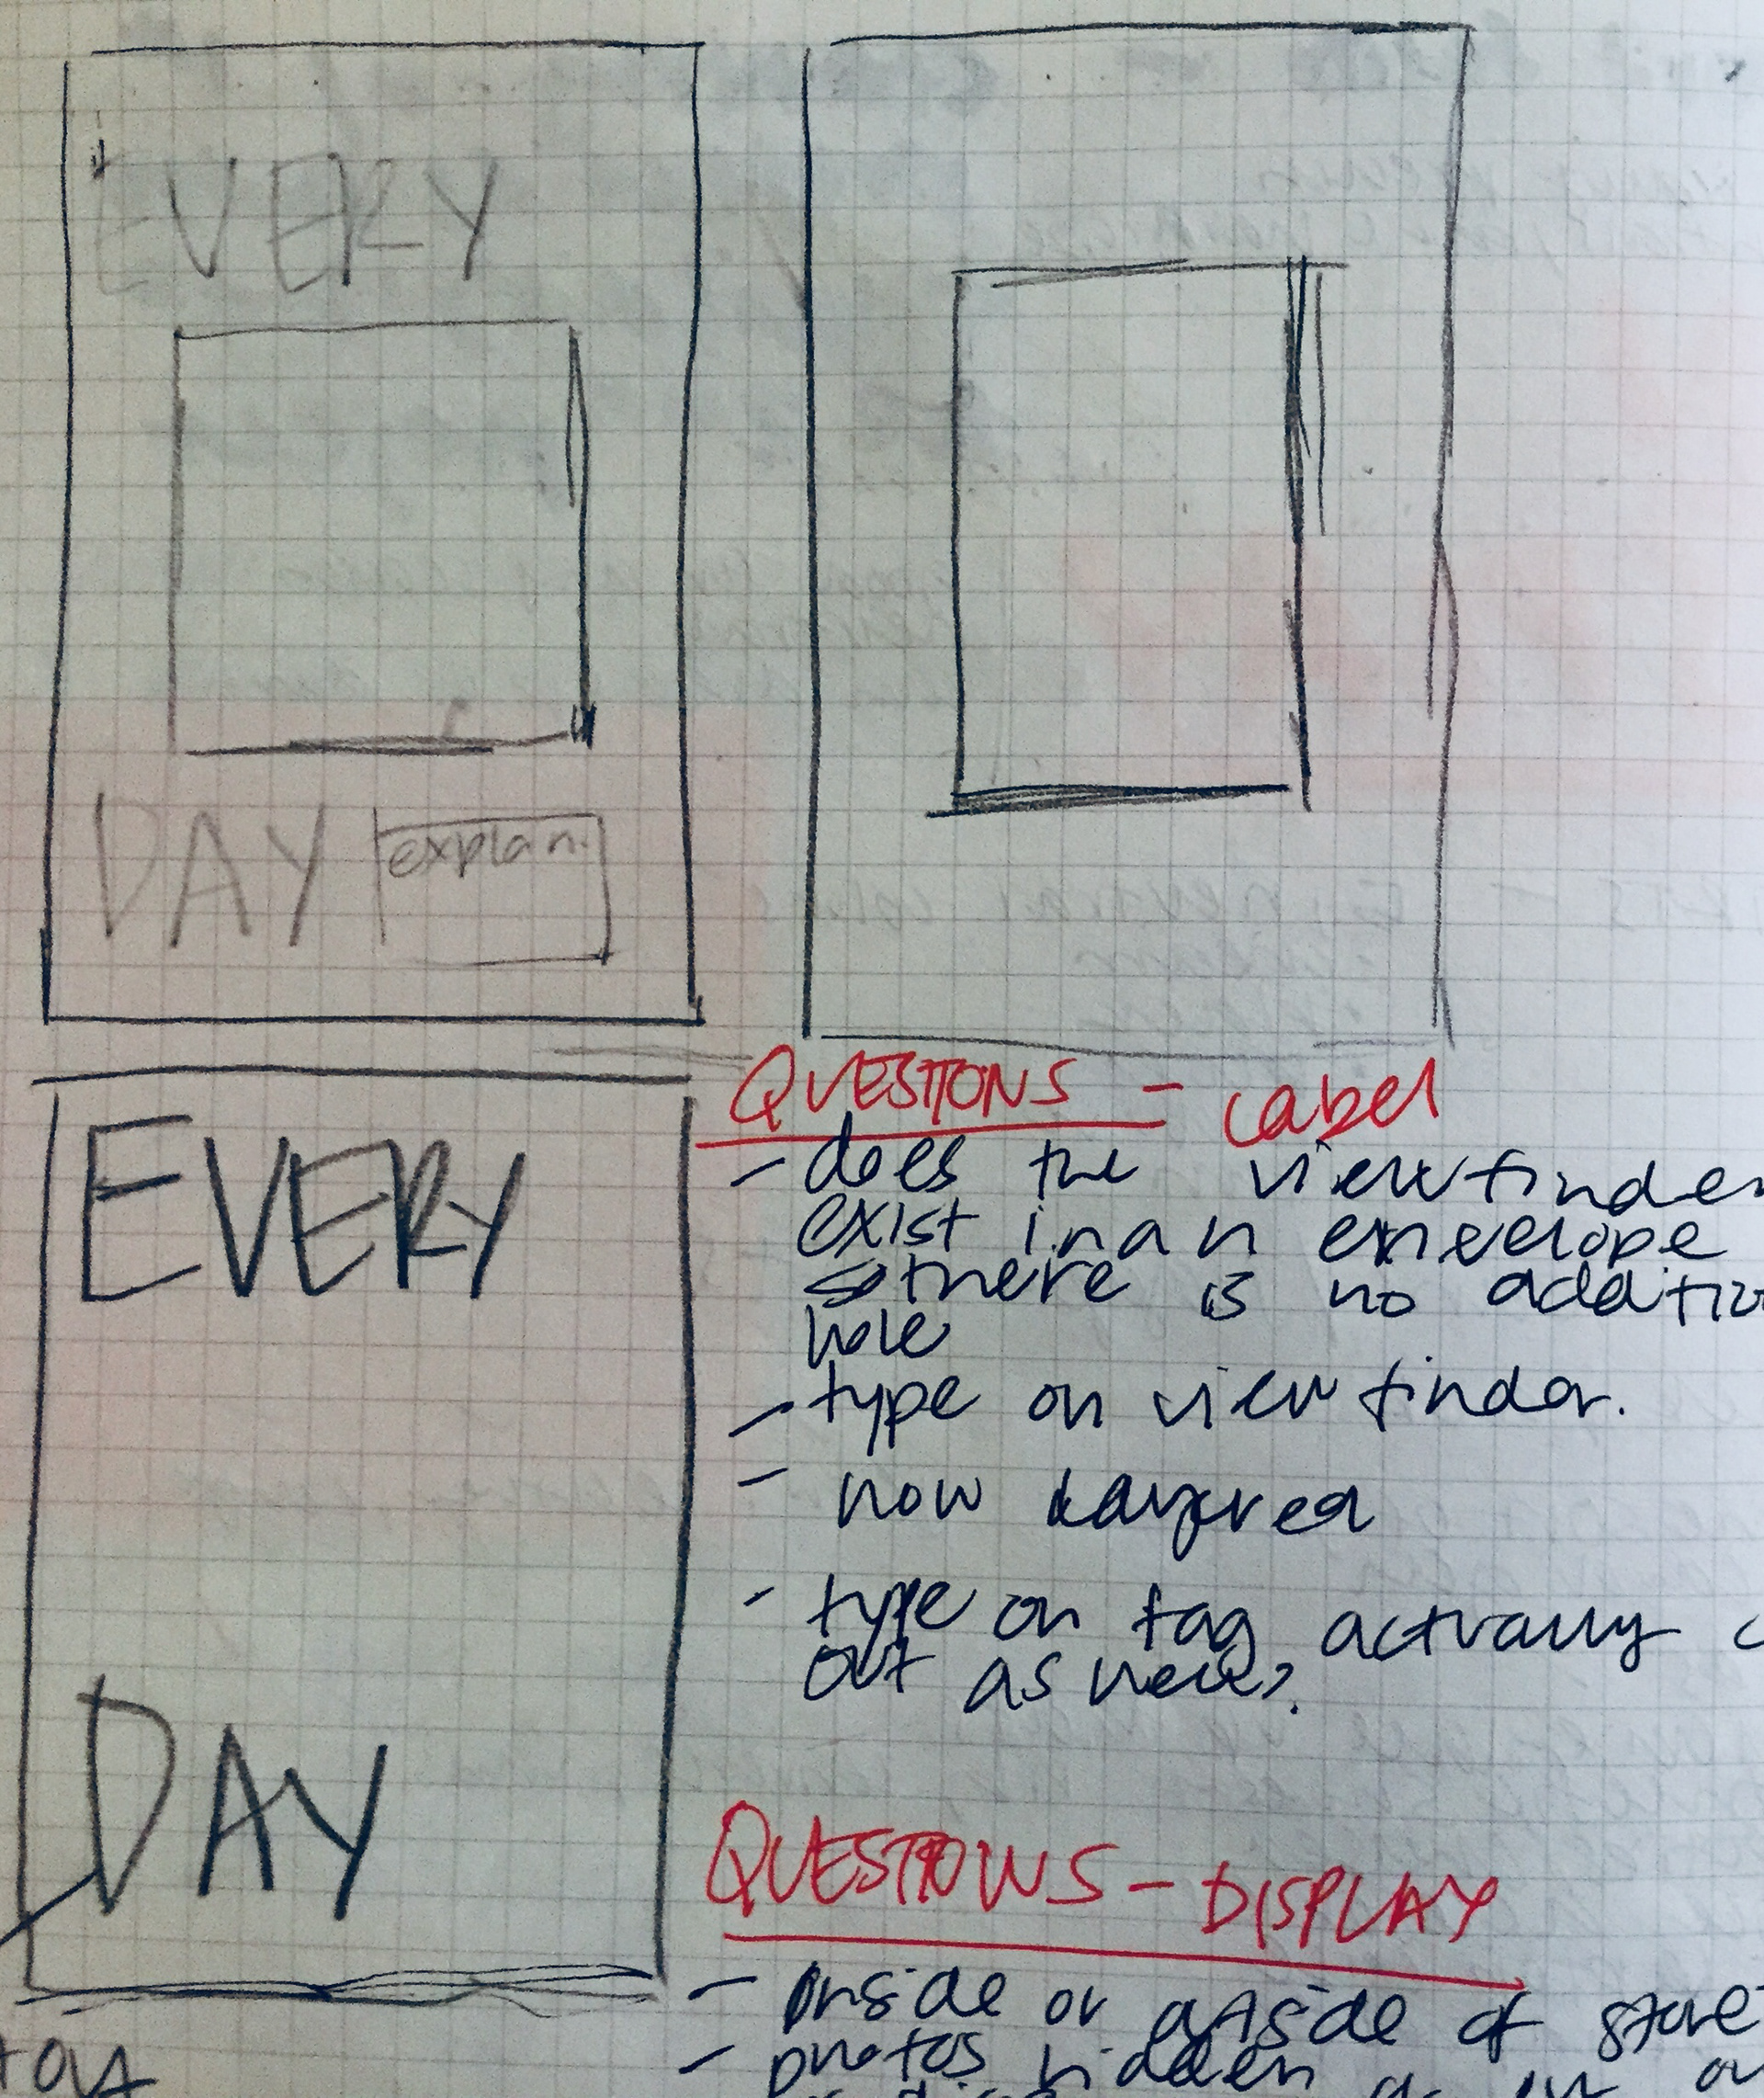 EVERY
DAY
explan.
EVERY
DAY
QUESTIONS - Label
- does the viewfinder
exist in an envelope
so there is no additio
hole
- type on viewfinder.
- how layered
- type on tag actually c
out as news?
QUESTIONS - DISPLAY
- inside or outside of store
- photos hidden